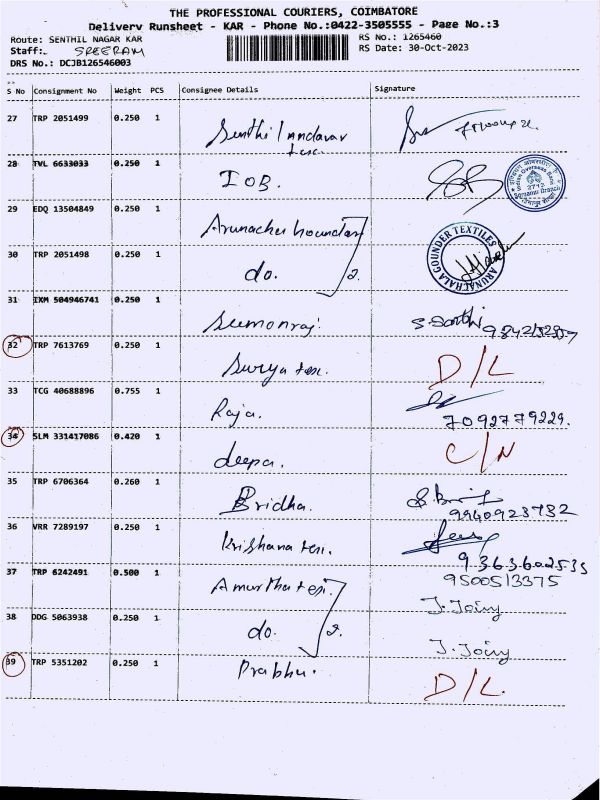 THE PROFESSIONAL COURIERS, COIMBATORE
Delivery Runsheet - KAR - Phone No.:0422-3505555 - Page No.:3
Route: SENTHIL NAGAR KAR
RS No.: 1265460
Staff:. SREERAM
RS Date: 30-Oct-2023
DRS No.: DCJB126546003
S No Consignment No Weight PCS Consignee Details Signature
27 TRP 2051499 0.250 1 Senthil Andavar
28 TVL 6633033 0.250 1 IOB.
Indian Overseas Bank
2712
29 EDQ 13504849 0.250 1 Arunachu hounder
ARUNATHALA GOUNDER TEXTILES
30 TRP 2051498 0.250 1 do. 2.
31 IXM 504946741 0.250 1 Seemonraj S. Sarthi
32 TRP 7613769 0.250 1 Surya tex. D/L
33 TCG 40688896 0.755 1 Raja. 7092779229.
34 SLM 331417086 0.420 1 deepa. C/N
35 TRP 6706364 0.260 1 Bridha. 9940923732
36 VRR 7289197 0.250 1 Krishana tex. 9363602535
37 TRP 6242491 0.500 1 Amurtha tex. 9500513375
J. Joiny
38 DDG 5063938 0.250 1 do. 2. J. Joiny
39 TRP 5351202 0.250 1 Prabhu. D/L.